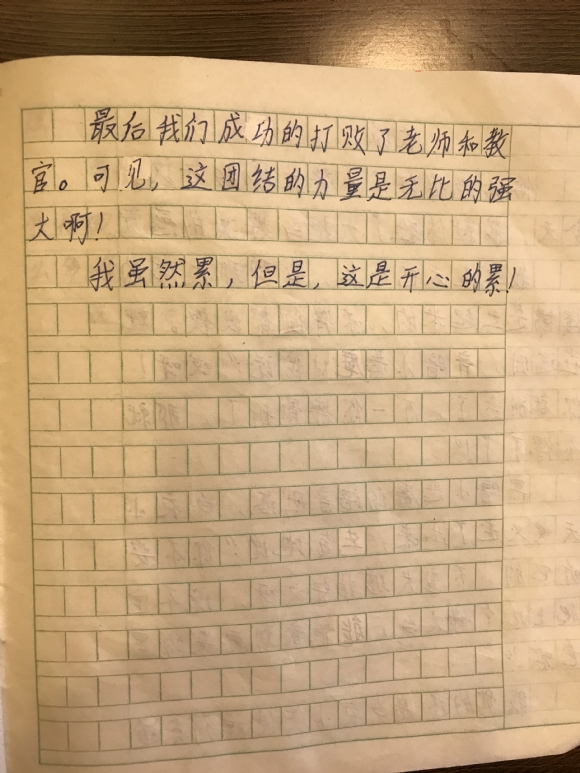 最后我们成功的打败了老师和教
官。可见，这团结的力量是无比的强
大啊！
我虽然累，但是，这是开心的累！